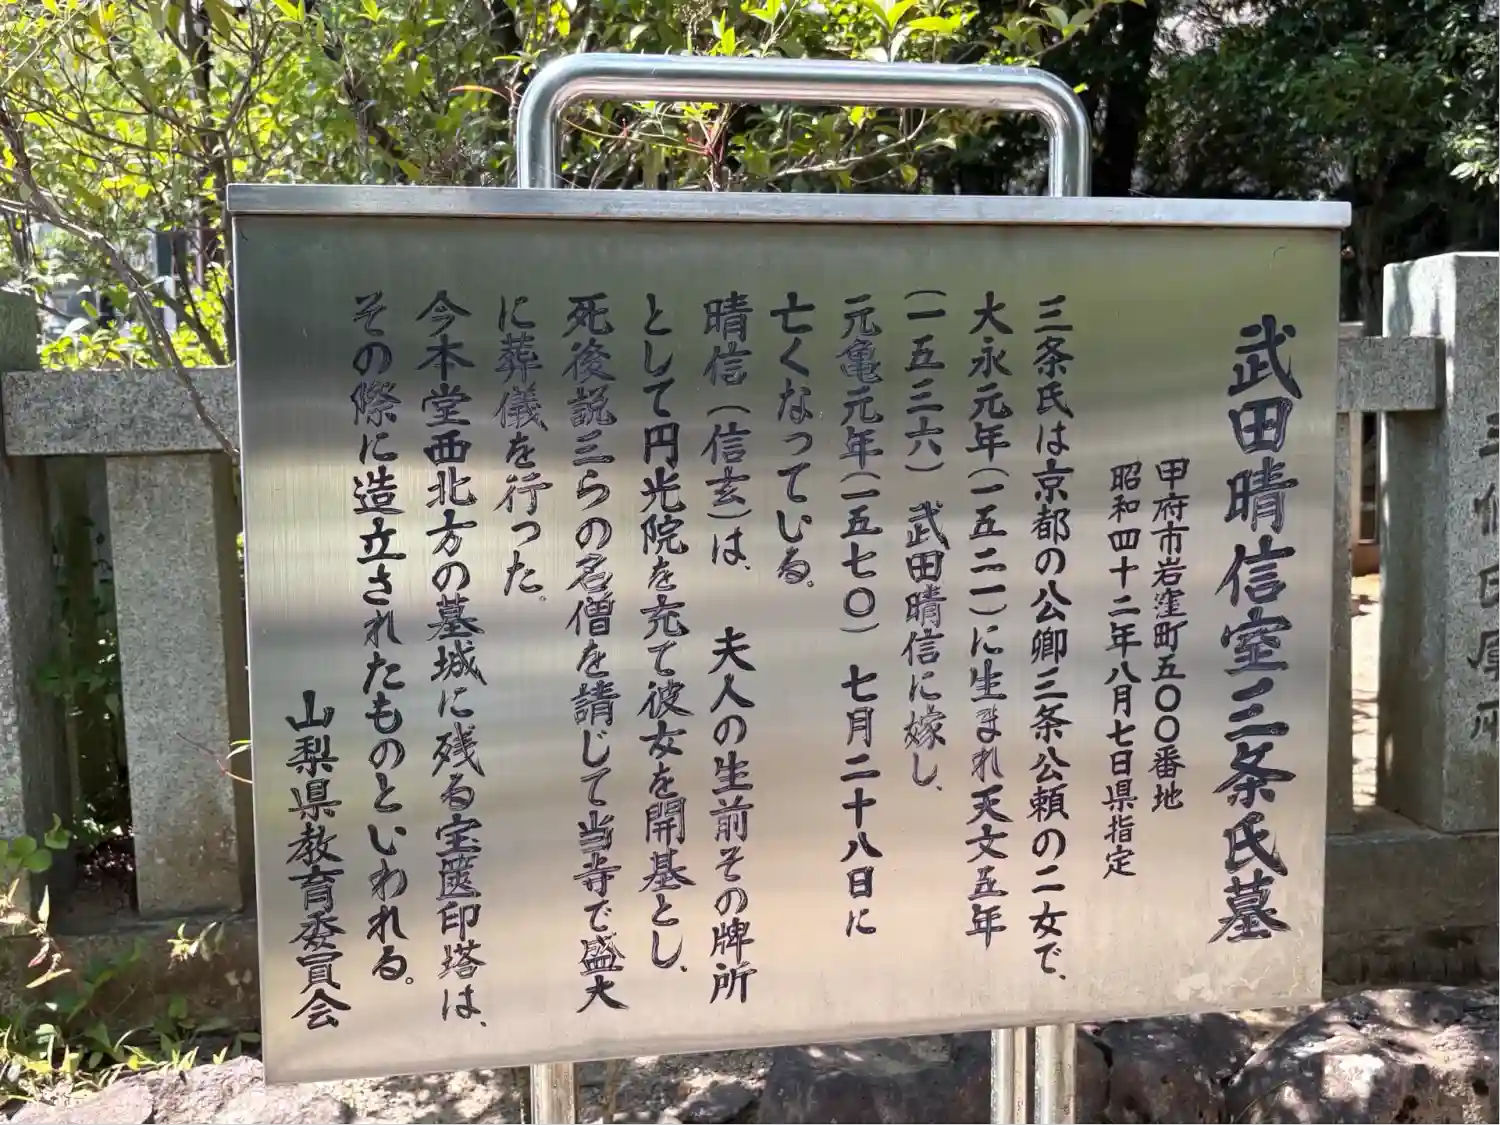 武田晴信室三条氏墓
甲府市岩窪町五〇〇番地
昭和四十二年八月七日県指定
三条氏は京都の公卿三条公頼の二女で、
大永元年（一五二一）に生まれ天文五年
（一五三六）　武田晴信に嫁し、
元亀元年（一五七〇）　七月二十八日に
亡くなっている。
晴信（信玄）は、　夫人の生前その牌所
として円光院を充て彼女を開基とし、
死後説三らの名僧を請じて当寺で盛大
に葬儀を行った。
今本堂西北方の墓城に残る宝篋印塔は、
その際に造立されたものといわれる。
山梨県教育委員会